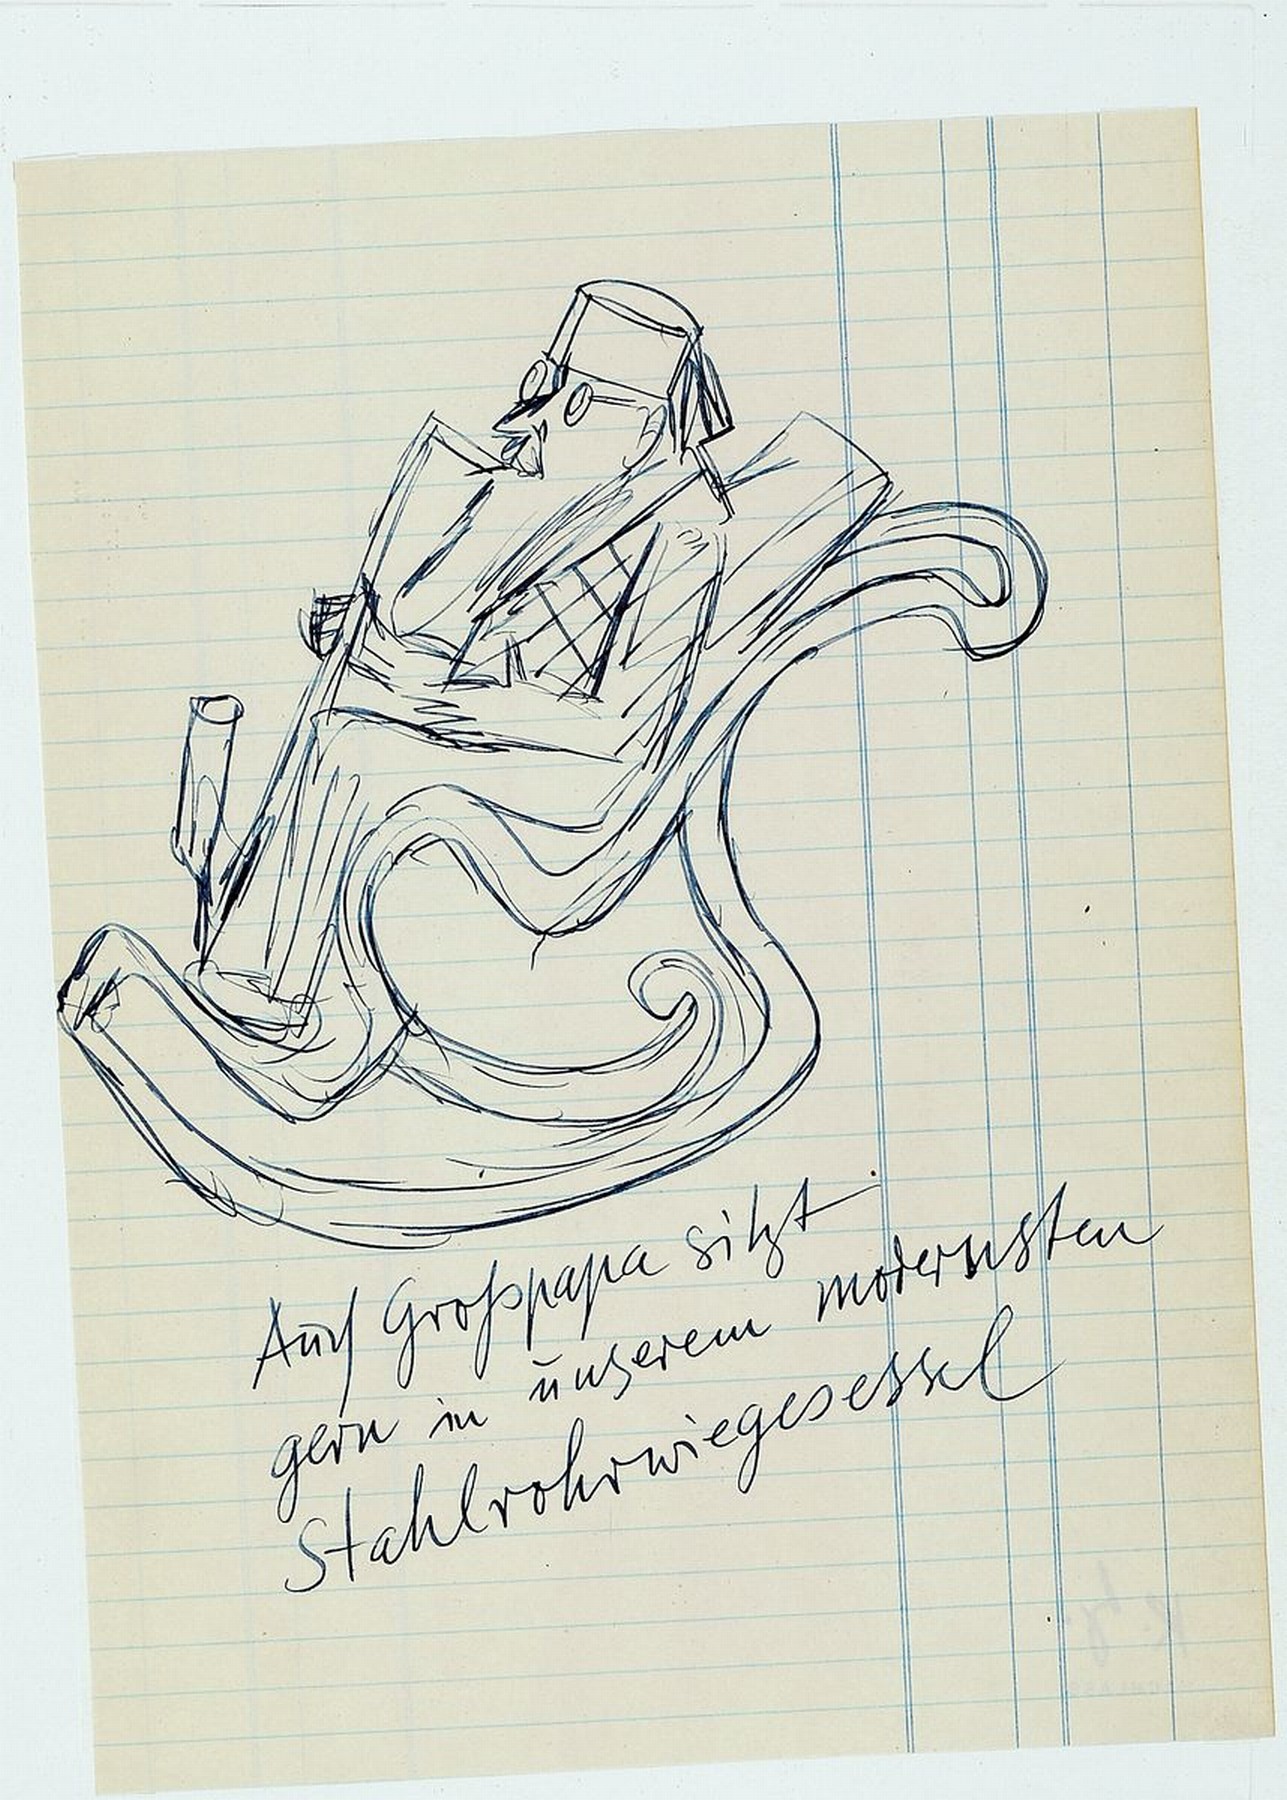 Auch Großpapa sitzt
gern in unserem modernsten
Stahlrohrwiegesessel